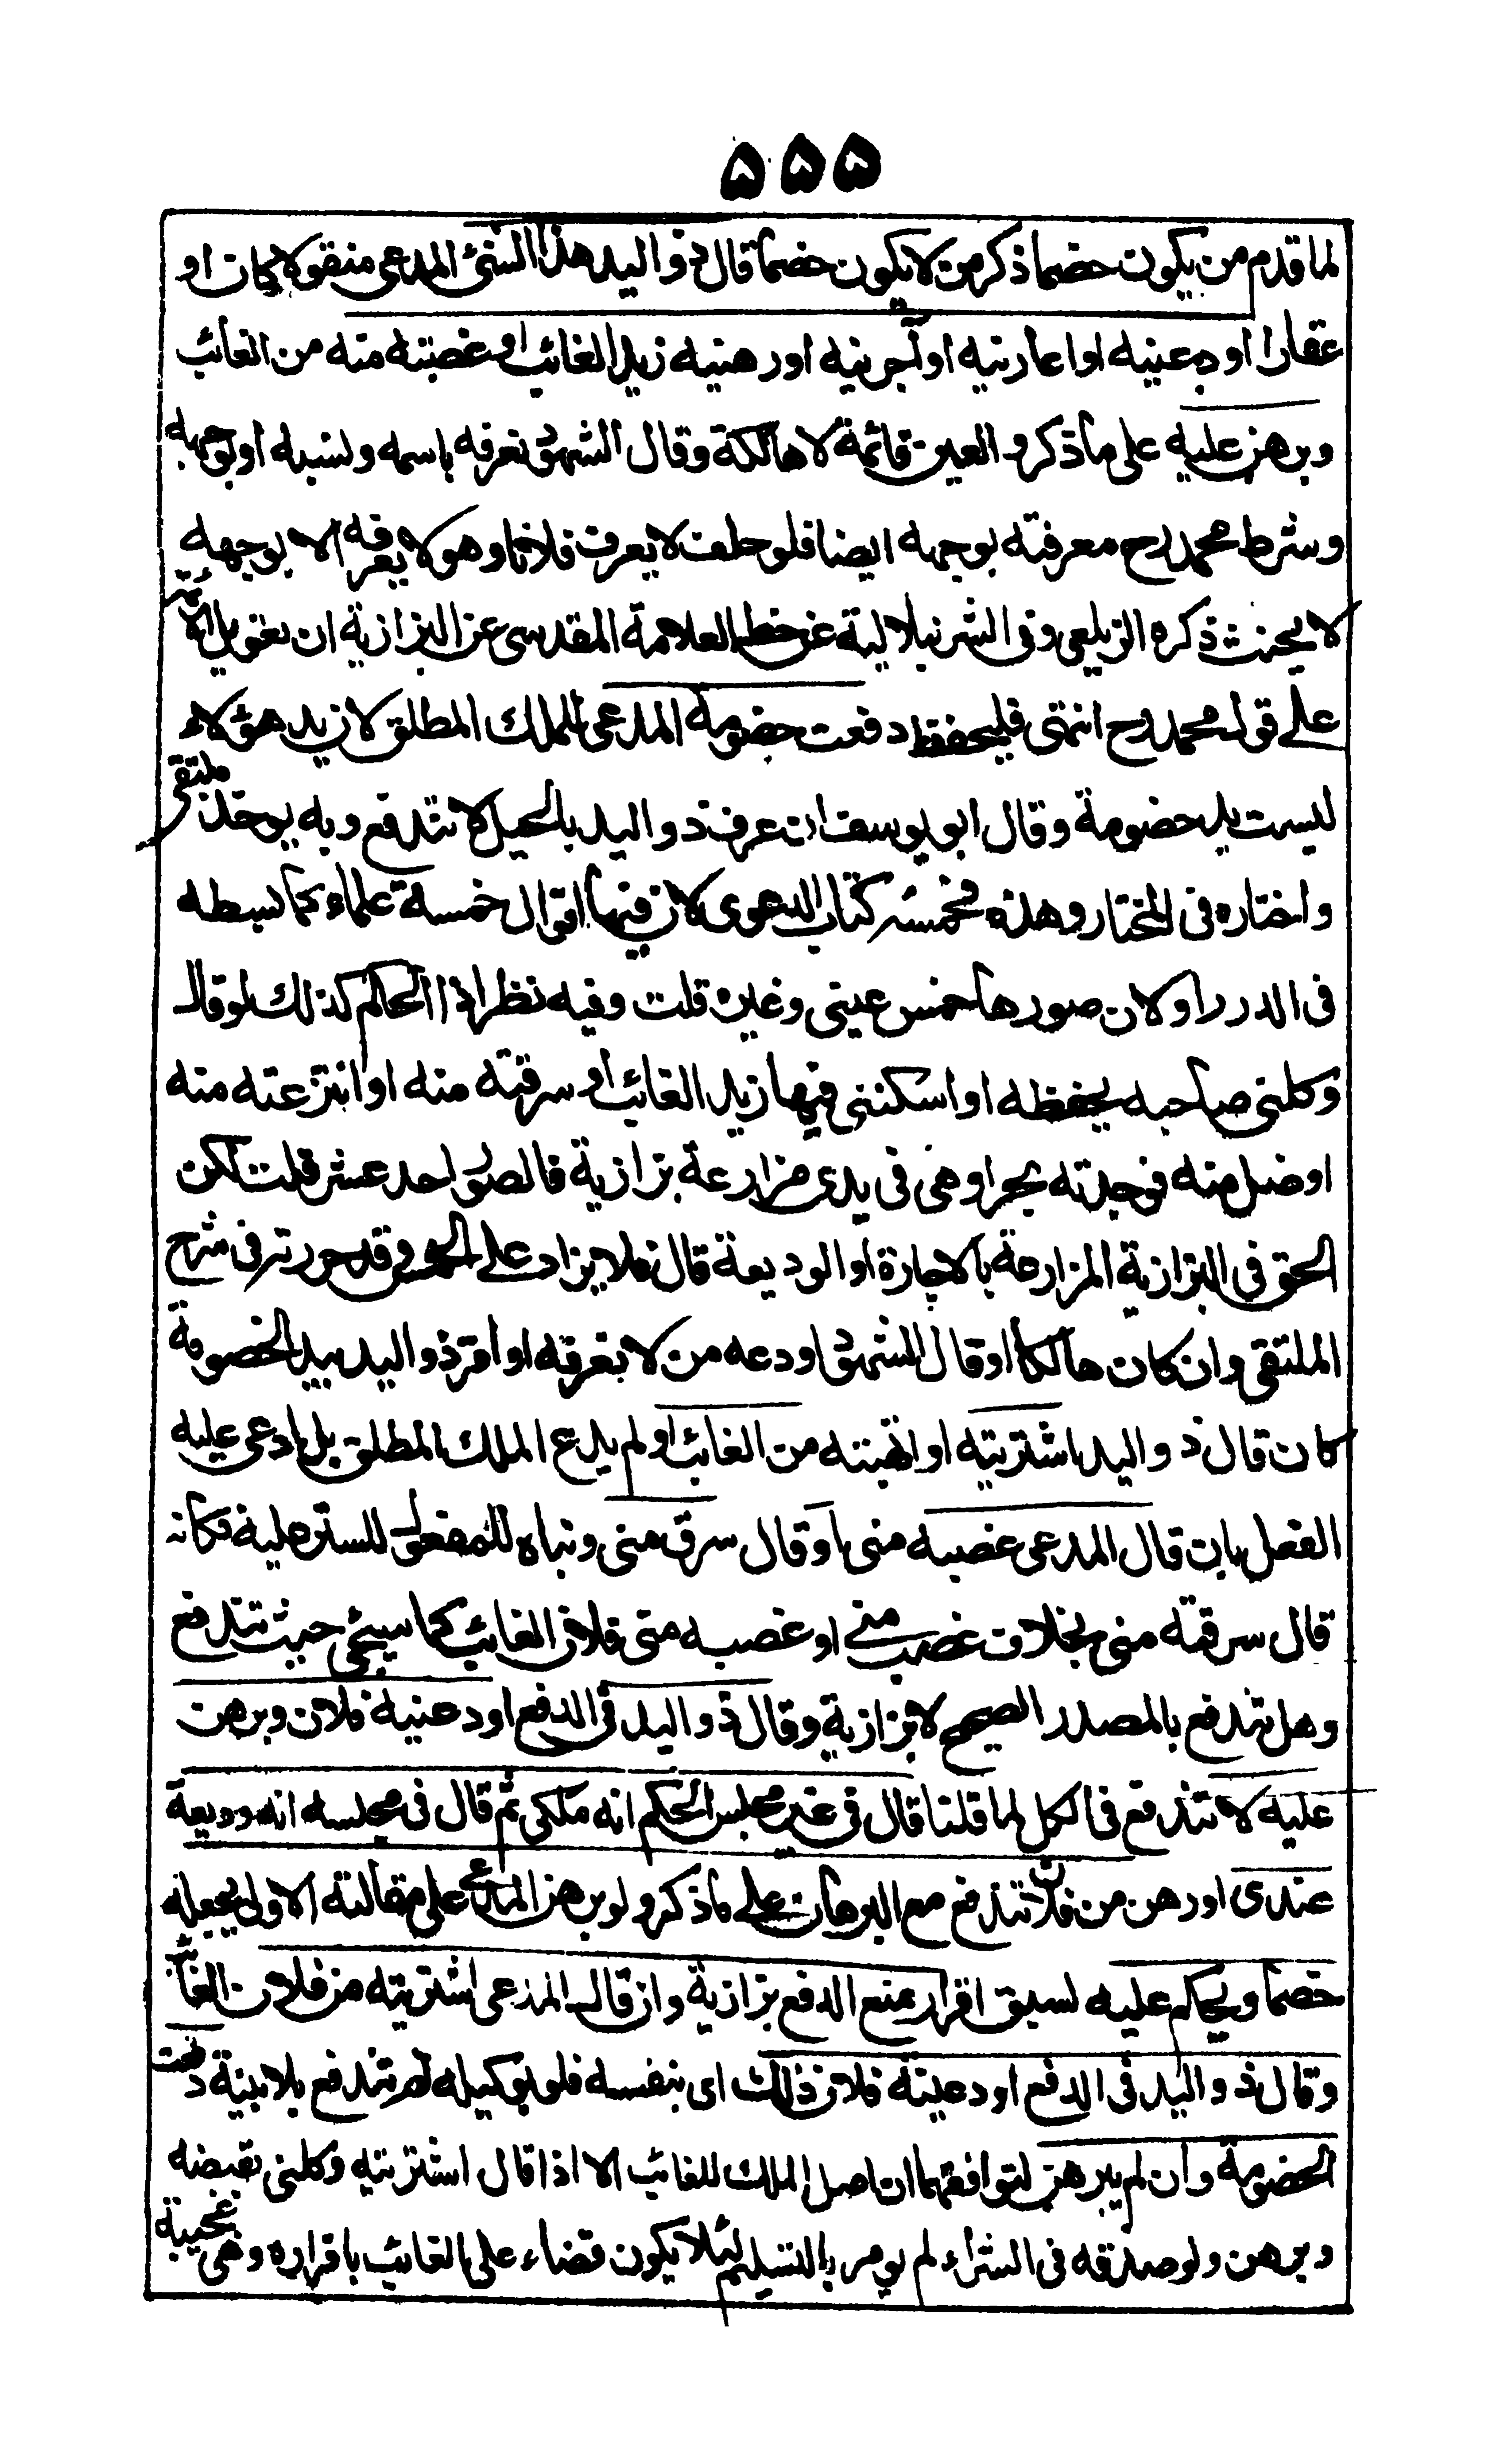 ۵۵۵
لما قدم من يكون خصما ذكر من لا يكون خصما قال ذو اليد هذا الشئ المدعى منقولا كان او
عقارا اودعنيه او اعارنيه او آجرنيه او رهنيه زيد الغائب او غصبته منه من الغائب
وبرهن عليه على ما ذكر و العين قائمة لا هالكة وقال الشهود نعرفه باسمه ونسبه او بوجهه
وشرط محمد رح معرفته بوجهه ايضا فلو حلف لا يعرف فلانا وهو لا يعرفه الا بوجهه
لا يحنث ذكره الزيلعى وفى الشرنبلالية عن خط العلامة المقدسى عن البزازية ان تعويل الائمة
على قول محمد رح انتهى فليحفظ دفعت خصومة المدعى للملك المطلق لان يد هؤلاء
ليست يد خصومة وقال ابو يوسف ان عرف ذو اليد بالحيل لا تندفع وبه يوخذ ملتقى
واختاره فى المختار وهذه مخمسة كتاب الدعوى لان فيها اقوال خمسة علماء كما بسطه
فى الدرر او لان صورها خمس عينى وغيره قلت وفيه نظر اذا الحكم كذلك لو قال
وكلنى صاحبه بحفظه او اسكننى فيها زيد الغائب او سرقته منه او انتزعته منه
او ضل منه فوجدته بحر او هى فى يدى مزارعة بزازية فالصور احد عشر قلت لكن
الحق فى البزازية المزارعة بالاجارة او الوديعة قال فلا يزاد على الخمس وقد حررته فى شرح
الملتقى وان كان هالكا او قال الشهود اودعه من لا نعرفه او اقر ذو اليد بيد الخصومة
كان قال ذو اليد اشتريته او اتهبته من الغائب او لم يدع الملك المطلق بل ادعى عليه
الفعل بان قال المدعى غصبه منى او قال سرق منى وبناه للمفعول للستر عليه فكانه
قال سرقته منى بخلاف غصب منى او غصبه منى فلان الغائب كما سيجئ حيث تندفع
وهل تندفع بالمصدر الصحيح لا بزازية وقال ذو اليد فى الدفع اودعنيه فلان وبرهن
عليه لا تندفع فى الكل لما قلنا قال فى غير مجلس الحكم انه ملكى ثم قال فى مجلسه انه وديعة
عندى او رهن من فلان تندفع مع البرهان على ما ذكر ولو برهن المدعى على مقالته الاولى يجعله
خصما ويحكم عليه لسبق اقرار يمنع الدفع بزازية وان قال المدعى اشتريته من فلان الغائب
وقال ذو اليد فى الدفع اودعنيه فلان ذلك اى بنفسه فلو بوكيله لم تندفع بلا بينة دفعت
الخصومة وان لم يبرهن لتوافقهما ان اصل الملك للغائب الا اذا قال اشتريته وكلنى بقبضه
وبرهن ولو صدقه فى الشراء لم يومر بالتسليم لئلا يكون قضاء على الغائب باقراره وهى عجيبة